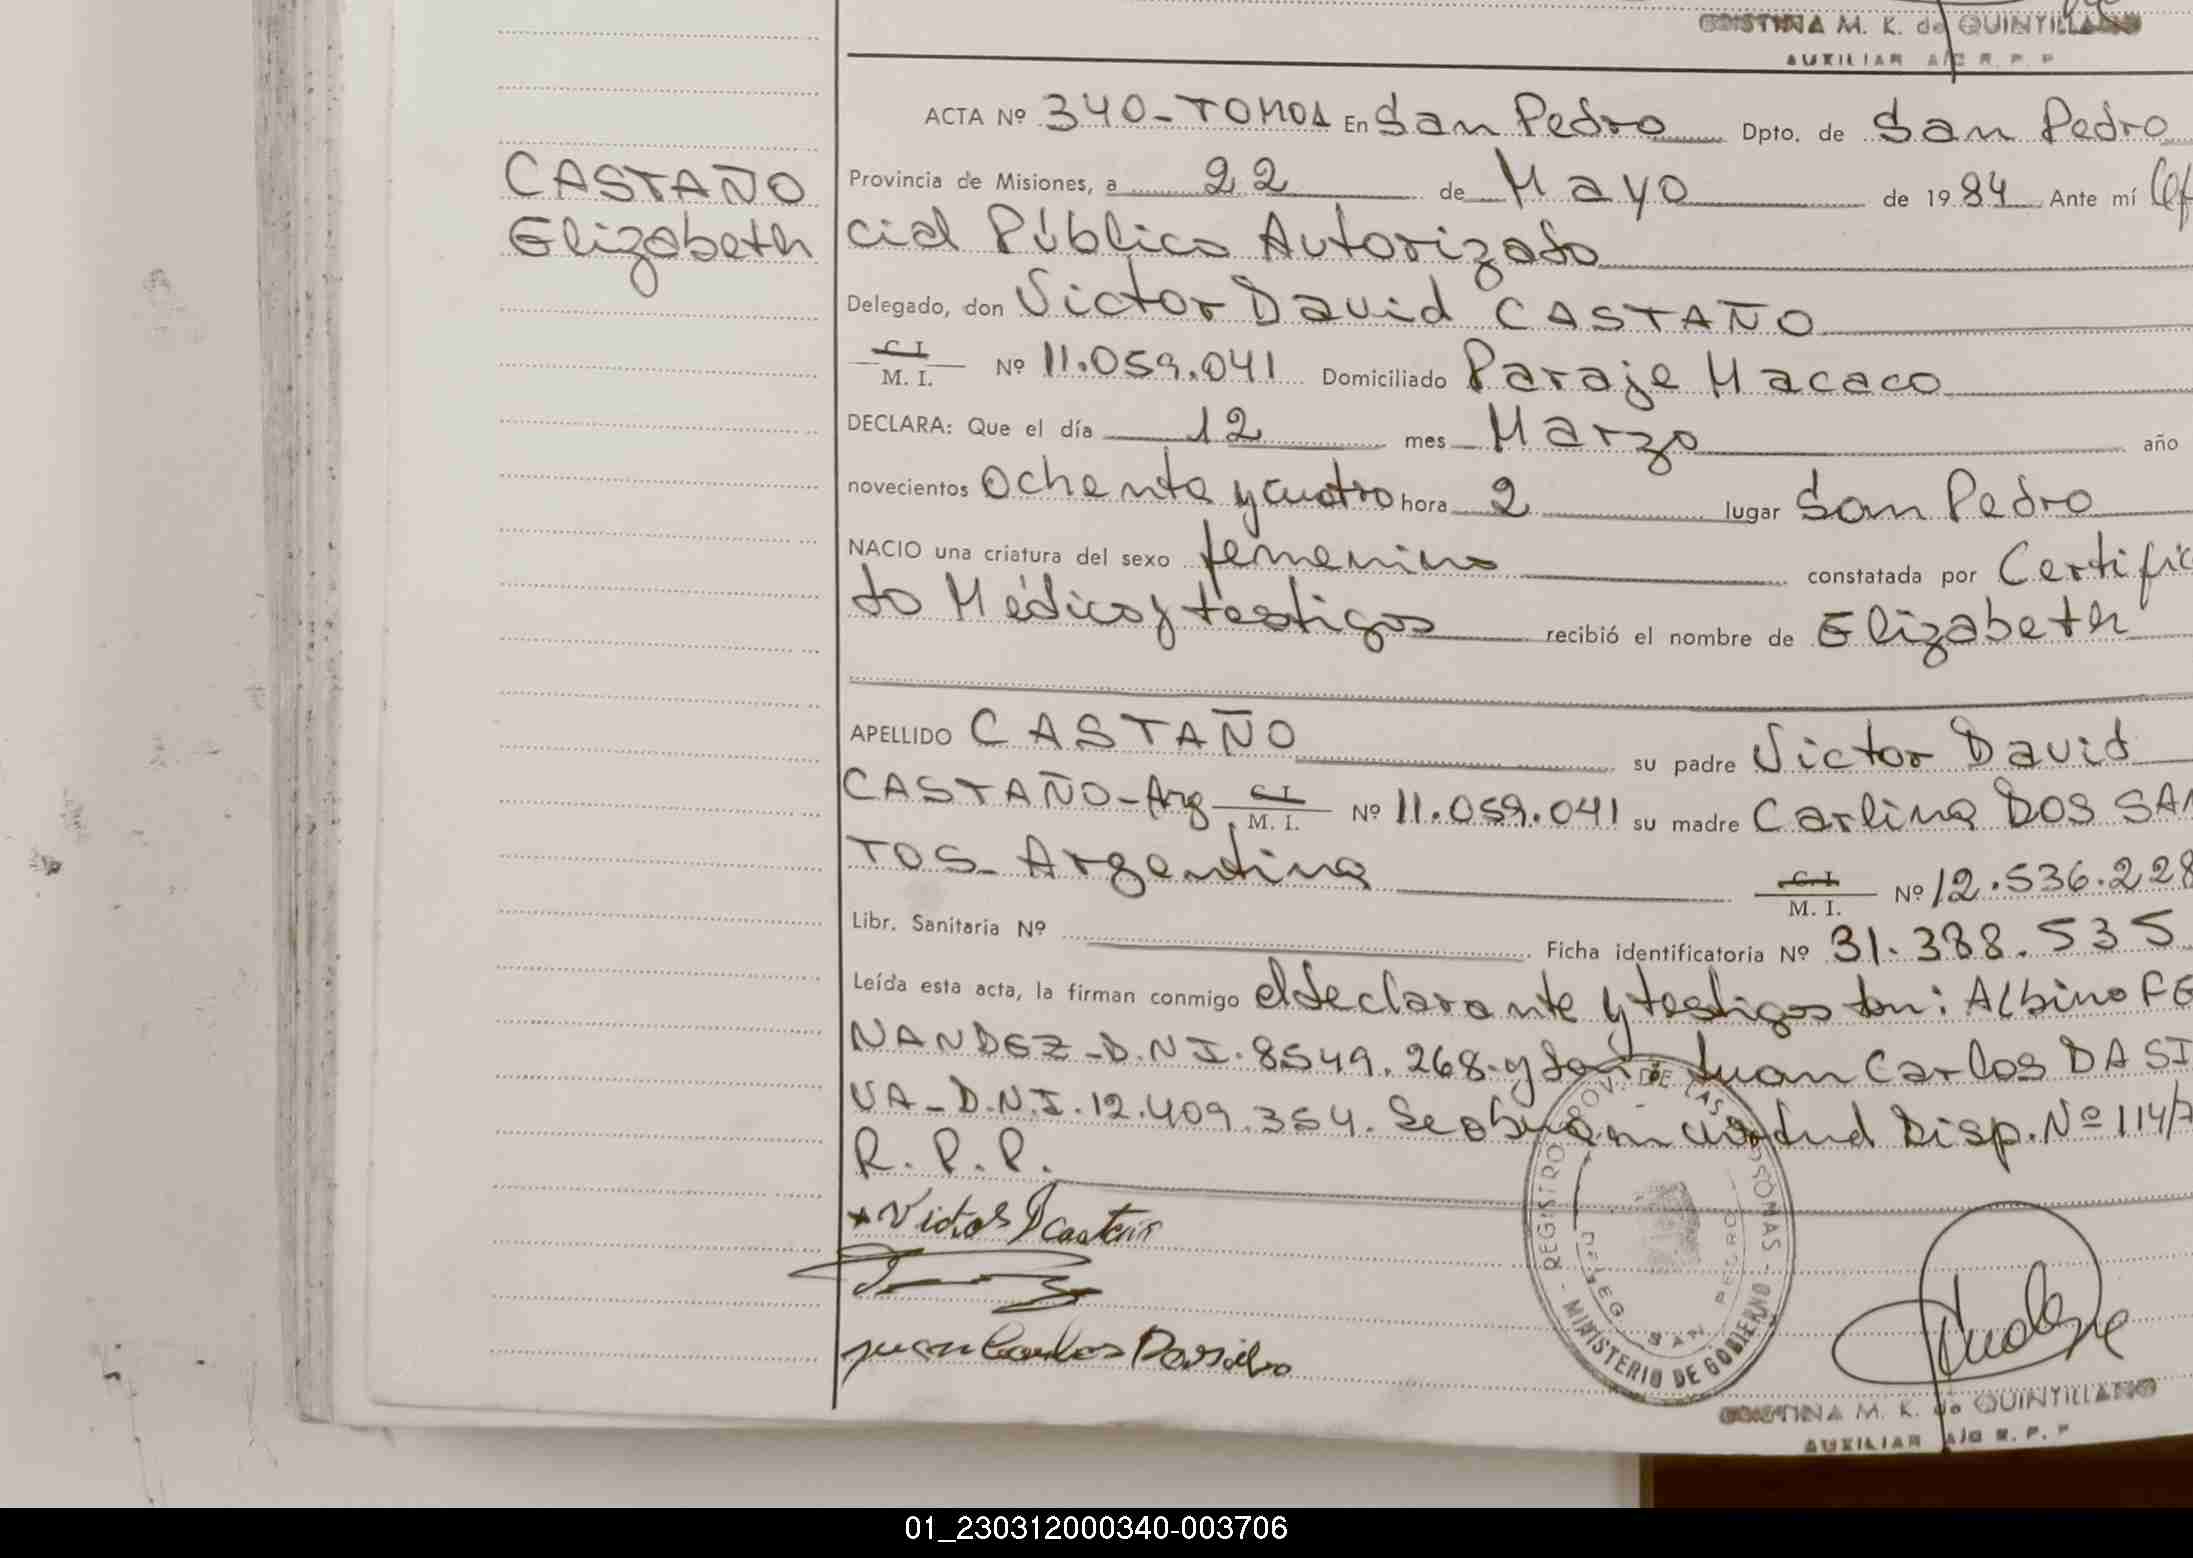 CRISTINA M. K. de QUINTILLANO
AUXILIAR A/C R. P. P
ACTA Nº 340-TOMO1 En San Pedro Dpto. de San Pedro
CASTAÑO
Elizabeth
Provincia de Misiones, a 22 de Mayo de 1984 Ante mí Of
cial Público Autorizado
Delegado, don Victor David CASTAÑO
C. I.
M. I. Nº 11.059.041 Domiciliado Paraje Macaco
DECLARA: Que el día 12 mes Marzo año
novecientos ochenta y cuatro hora 2 lugar San Pedro
NACIO una criatura del sexo femenino constatada por Certific
do Médico y testigos recibió el nombre de Elizabeth
APELLIDO CASTAÑO su padre Victor David
CASTAÑO-Arg C. I. M. I. Nº 11.059.041 su madre Carlina DOS SAN
TOS- Argentina C. I. M. I. Nº 12.536.228
Libr. Sanitaria Nº Ficha identificatoria Nº 31.388.535
Leída esta acta, la firman conmigo el declarante y testigos don: Albino FE
NANDEZ-D.N.I. 8549.268-y don Juan Carlos DA SI
VA-D.N.I. 12.409.354. Se obró en virtud Disp. Nº 114/7
R. P. P.
Victor D Castaño
Juan Carlos Dasilva
REGISTRO PROV. DE LAS PERSONAS - MINISTERIO DE GOBIERNO -
DELEG. SAN PEDRO
CRISTINA M. K. de QUINTILLANO
AUXILIAR A/C R. P. P
01_230312000340-003706